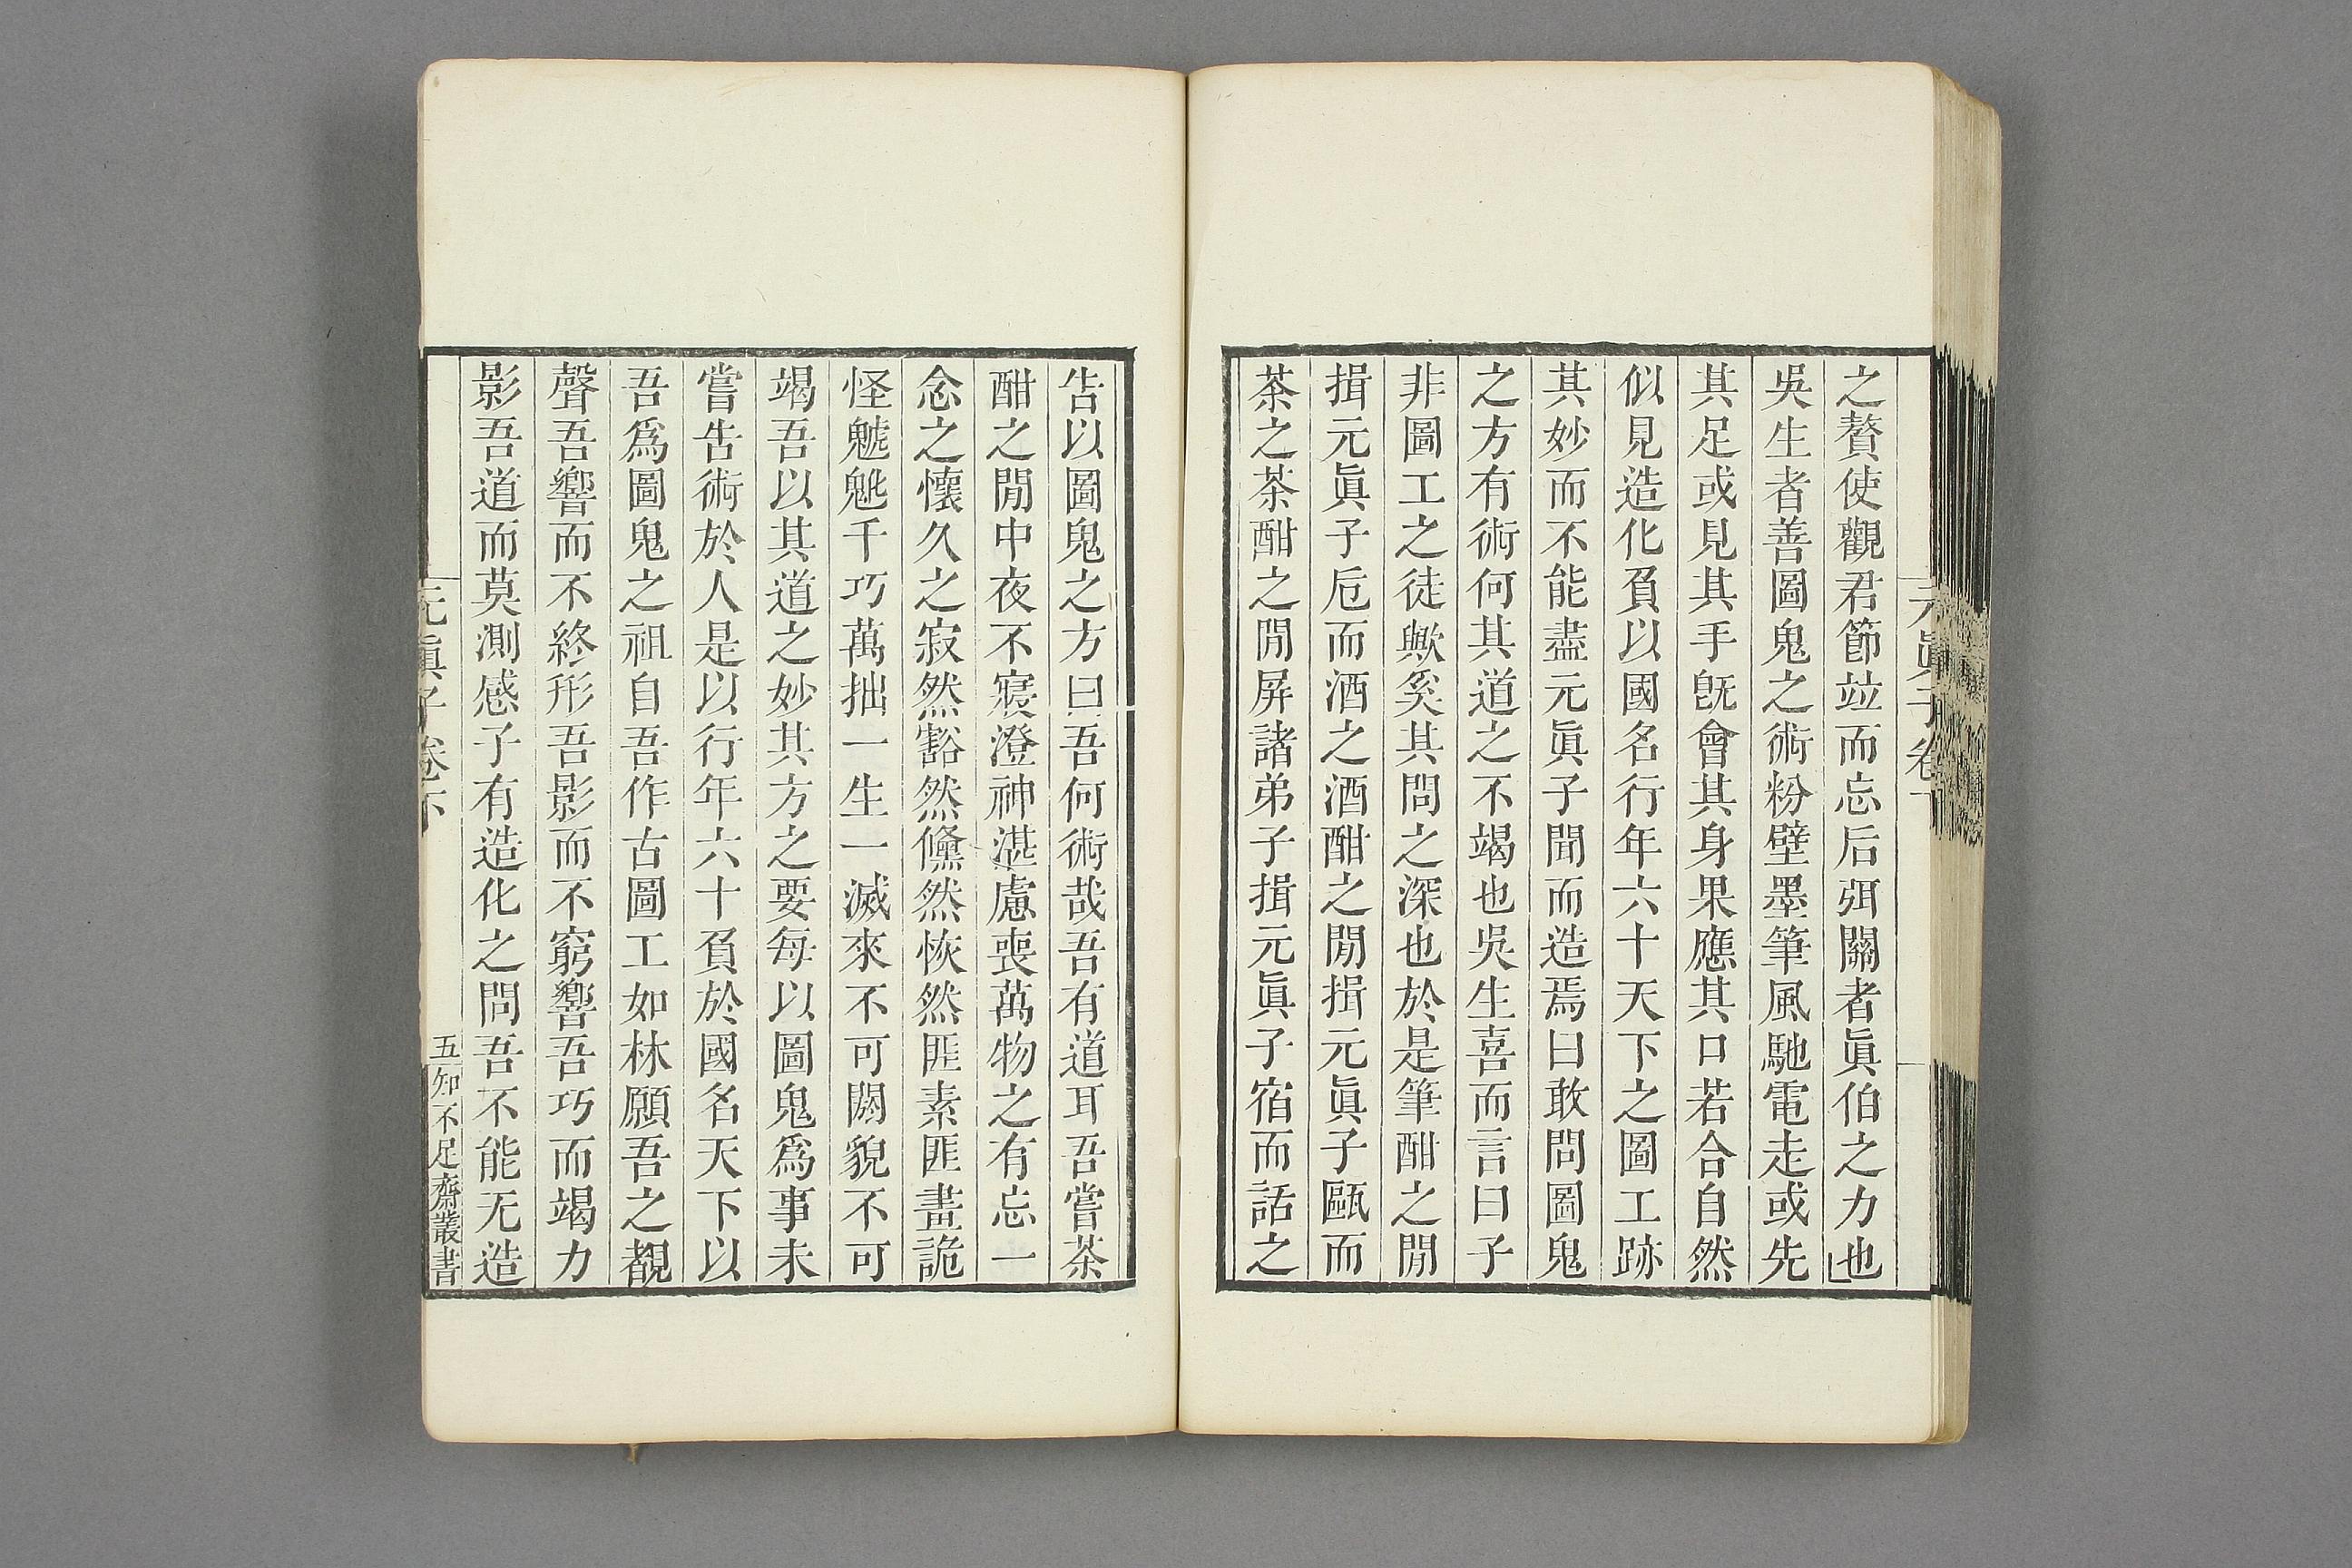 之贅使觀君節竝而忘后弭關者眞伯之力也
吳生者善圖鬼之術粉壁墨筆風馳電走或先
其足或見其手旣會其身果應其口若合自然
似見造化負以國名行年六十天下之圖工跡
其妙而不能盡元眞子聞而造焉曰敢問圖鬼
之方有術何其道之不竭也吳生喜而言曰子
非圖工之徒歟奚其問之深也於是筆酣之閒
揖元眞子卮而酒之酒酣之閒揖元眞子甌而
茶之茶酣之閒屛諸弟子揖元眞子宿而話之
元眞子卷下
告以圖鬼之方曰吾何術哉吾有道耳吾嘗茶
酣之閒中夜不寢澄神湛慮喪萬物之有忘一
念之懷久之寂然豁然儵然恢然匪素匪畫詭
怪魑魅千巧萬拙一生一滅來不可闕貌不可
竭吾以其道之妙其方之要每以圖鬼爲事未
嘗告術於人是以行年六十負於國名天下以
吾爲圖鬼之祖自吾作古圖工如林願吾之覩
聲吾響而不終形吾影而不窮響吾巧而竭力
影吾道而莫測感子有造化之問吾不能无造
元眞子卷下
五
知不足齋叢書